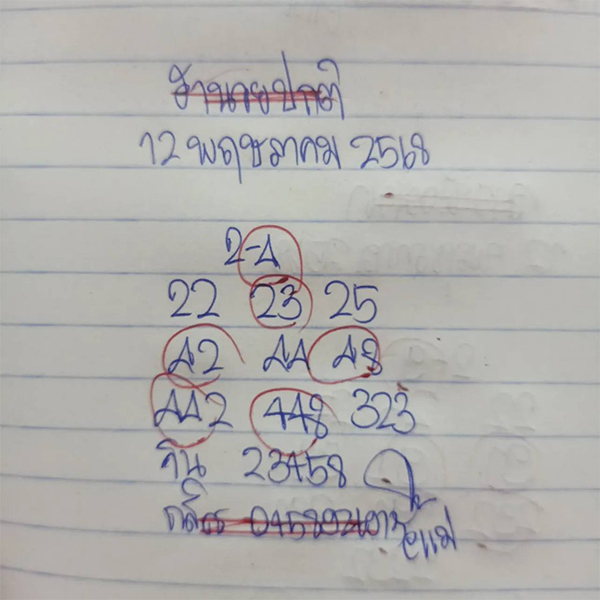 ฮานอยปกติ
12 พฤษภาคม 2568
2-4
22 23 25
42 44 48
442 448 323
วิน 23458
แม่